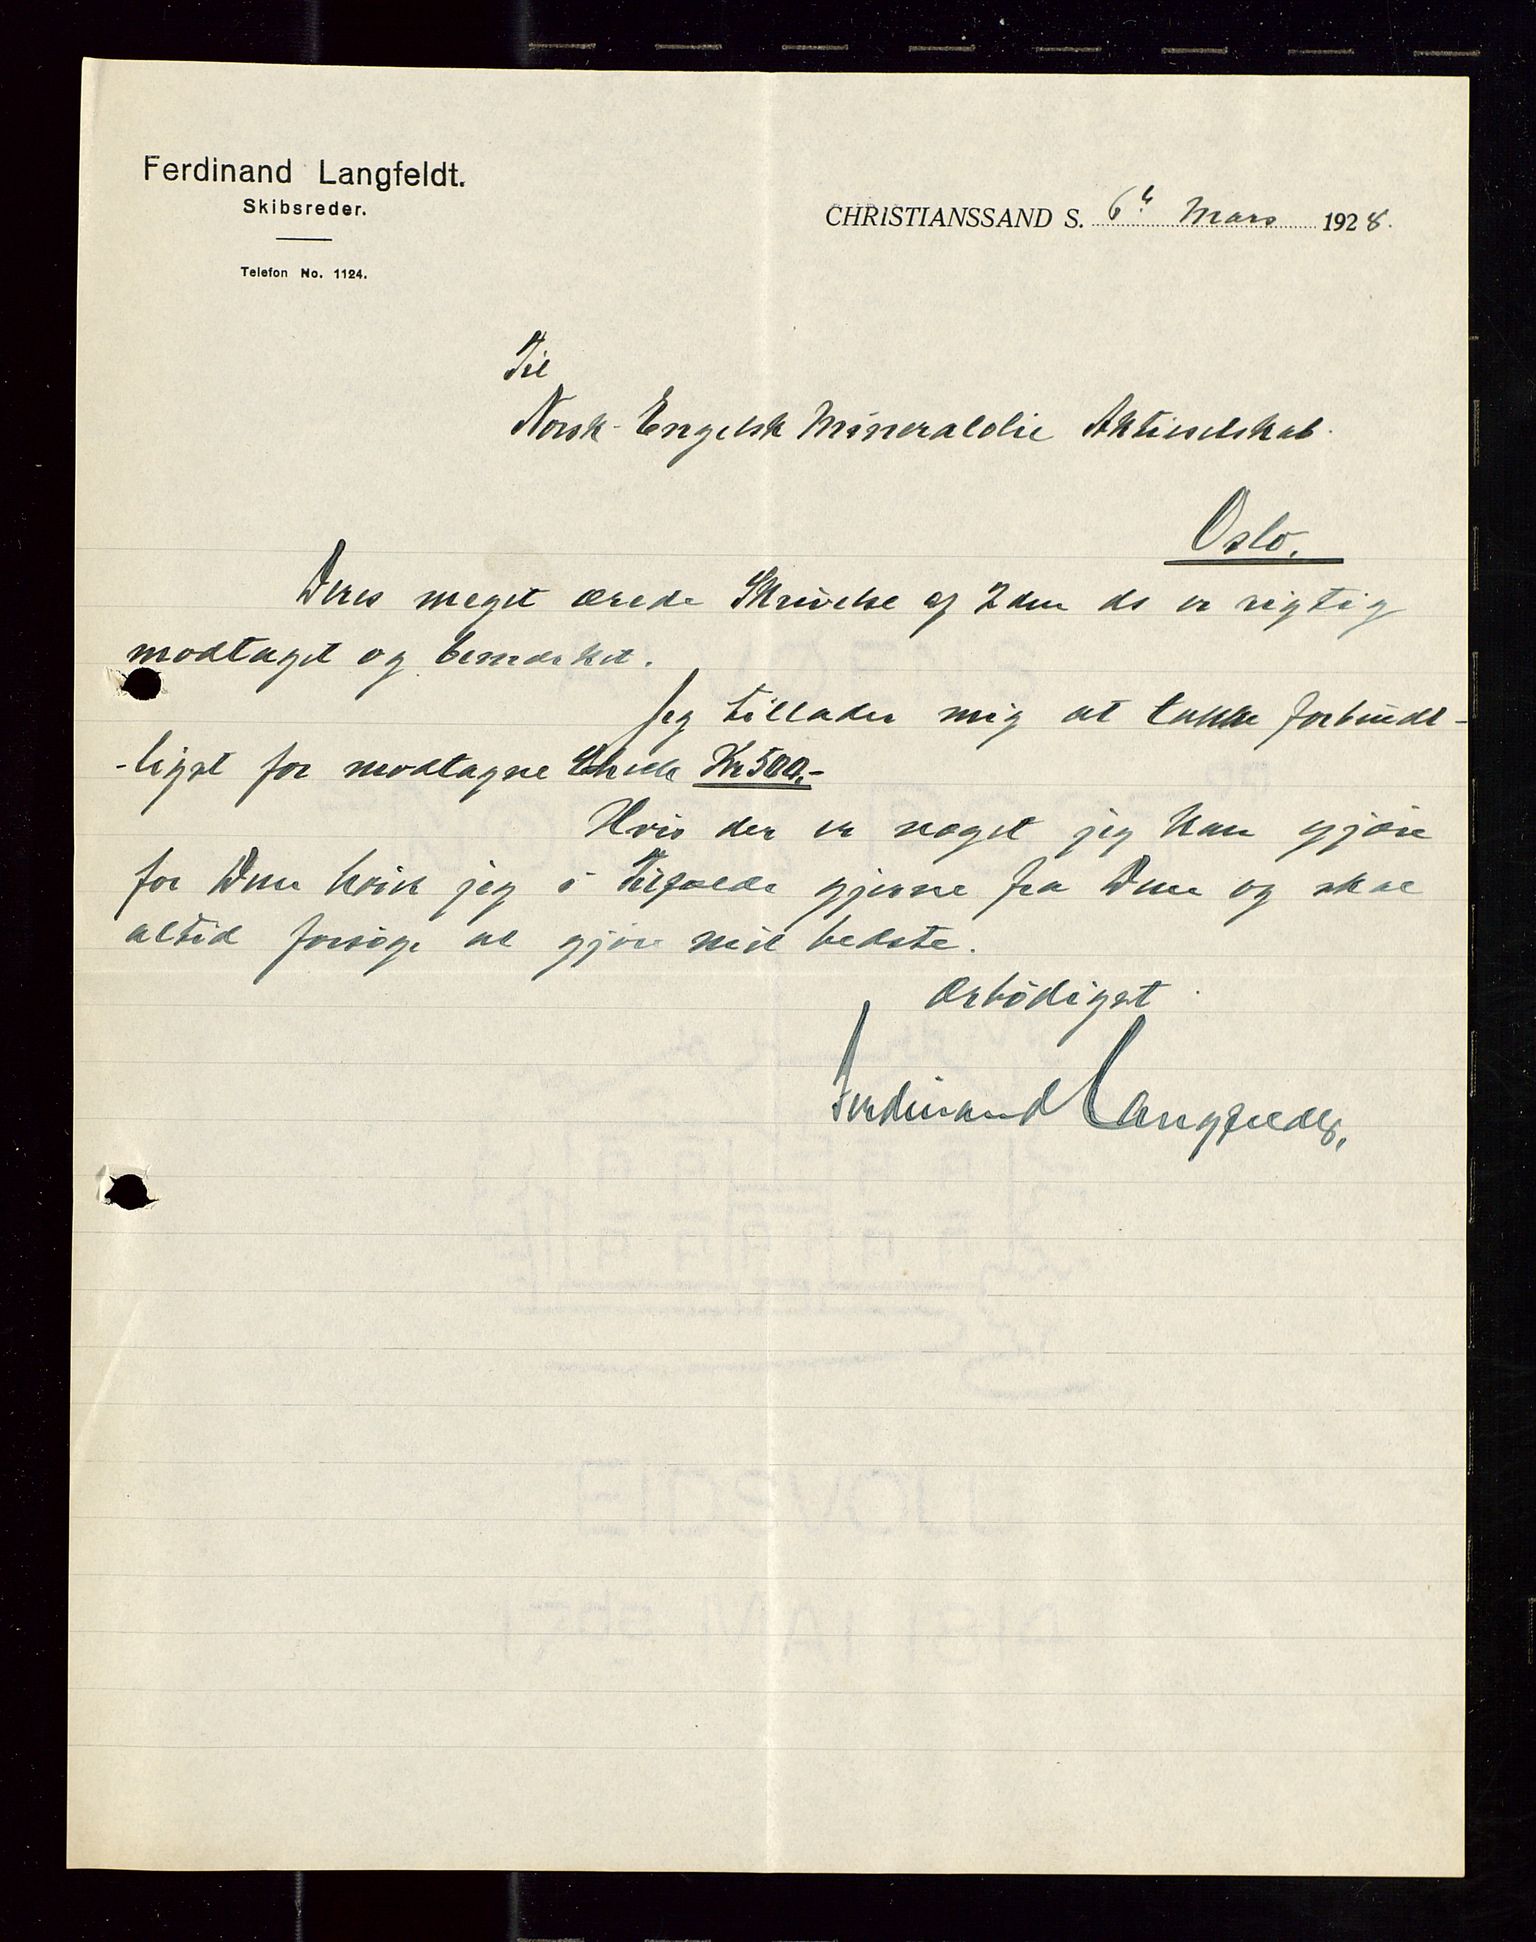 Ferdinand Langfeldt.
Skibsreder.
Telefon No. 1124.
CHRISTIANSSAND S. 6te Mars 1928.
Til
Norsk-Engelsk Mineralolie Aktieselskab.
Oslo.
Deres meget ærede Skrivelse af 2den ds er rigtig
modtaget og bemærket.
Jeg tillader mig at takke forbindt-
-ligst for modtagne Check Kr 500,-
Hvis der er noget jeg kan gjøre
for Dem hører jeg i Tilfælde gjerne fra Dem og skal
altid forsøge at gjøre mit bedste.
Ærbødigst
Ferdinand Langfeldt.